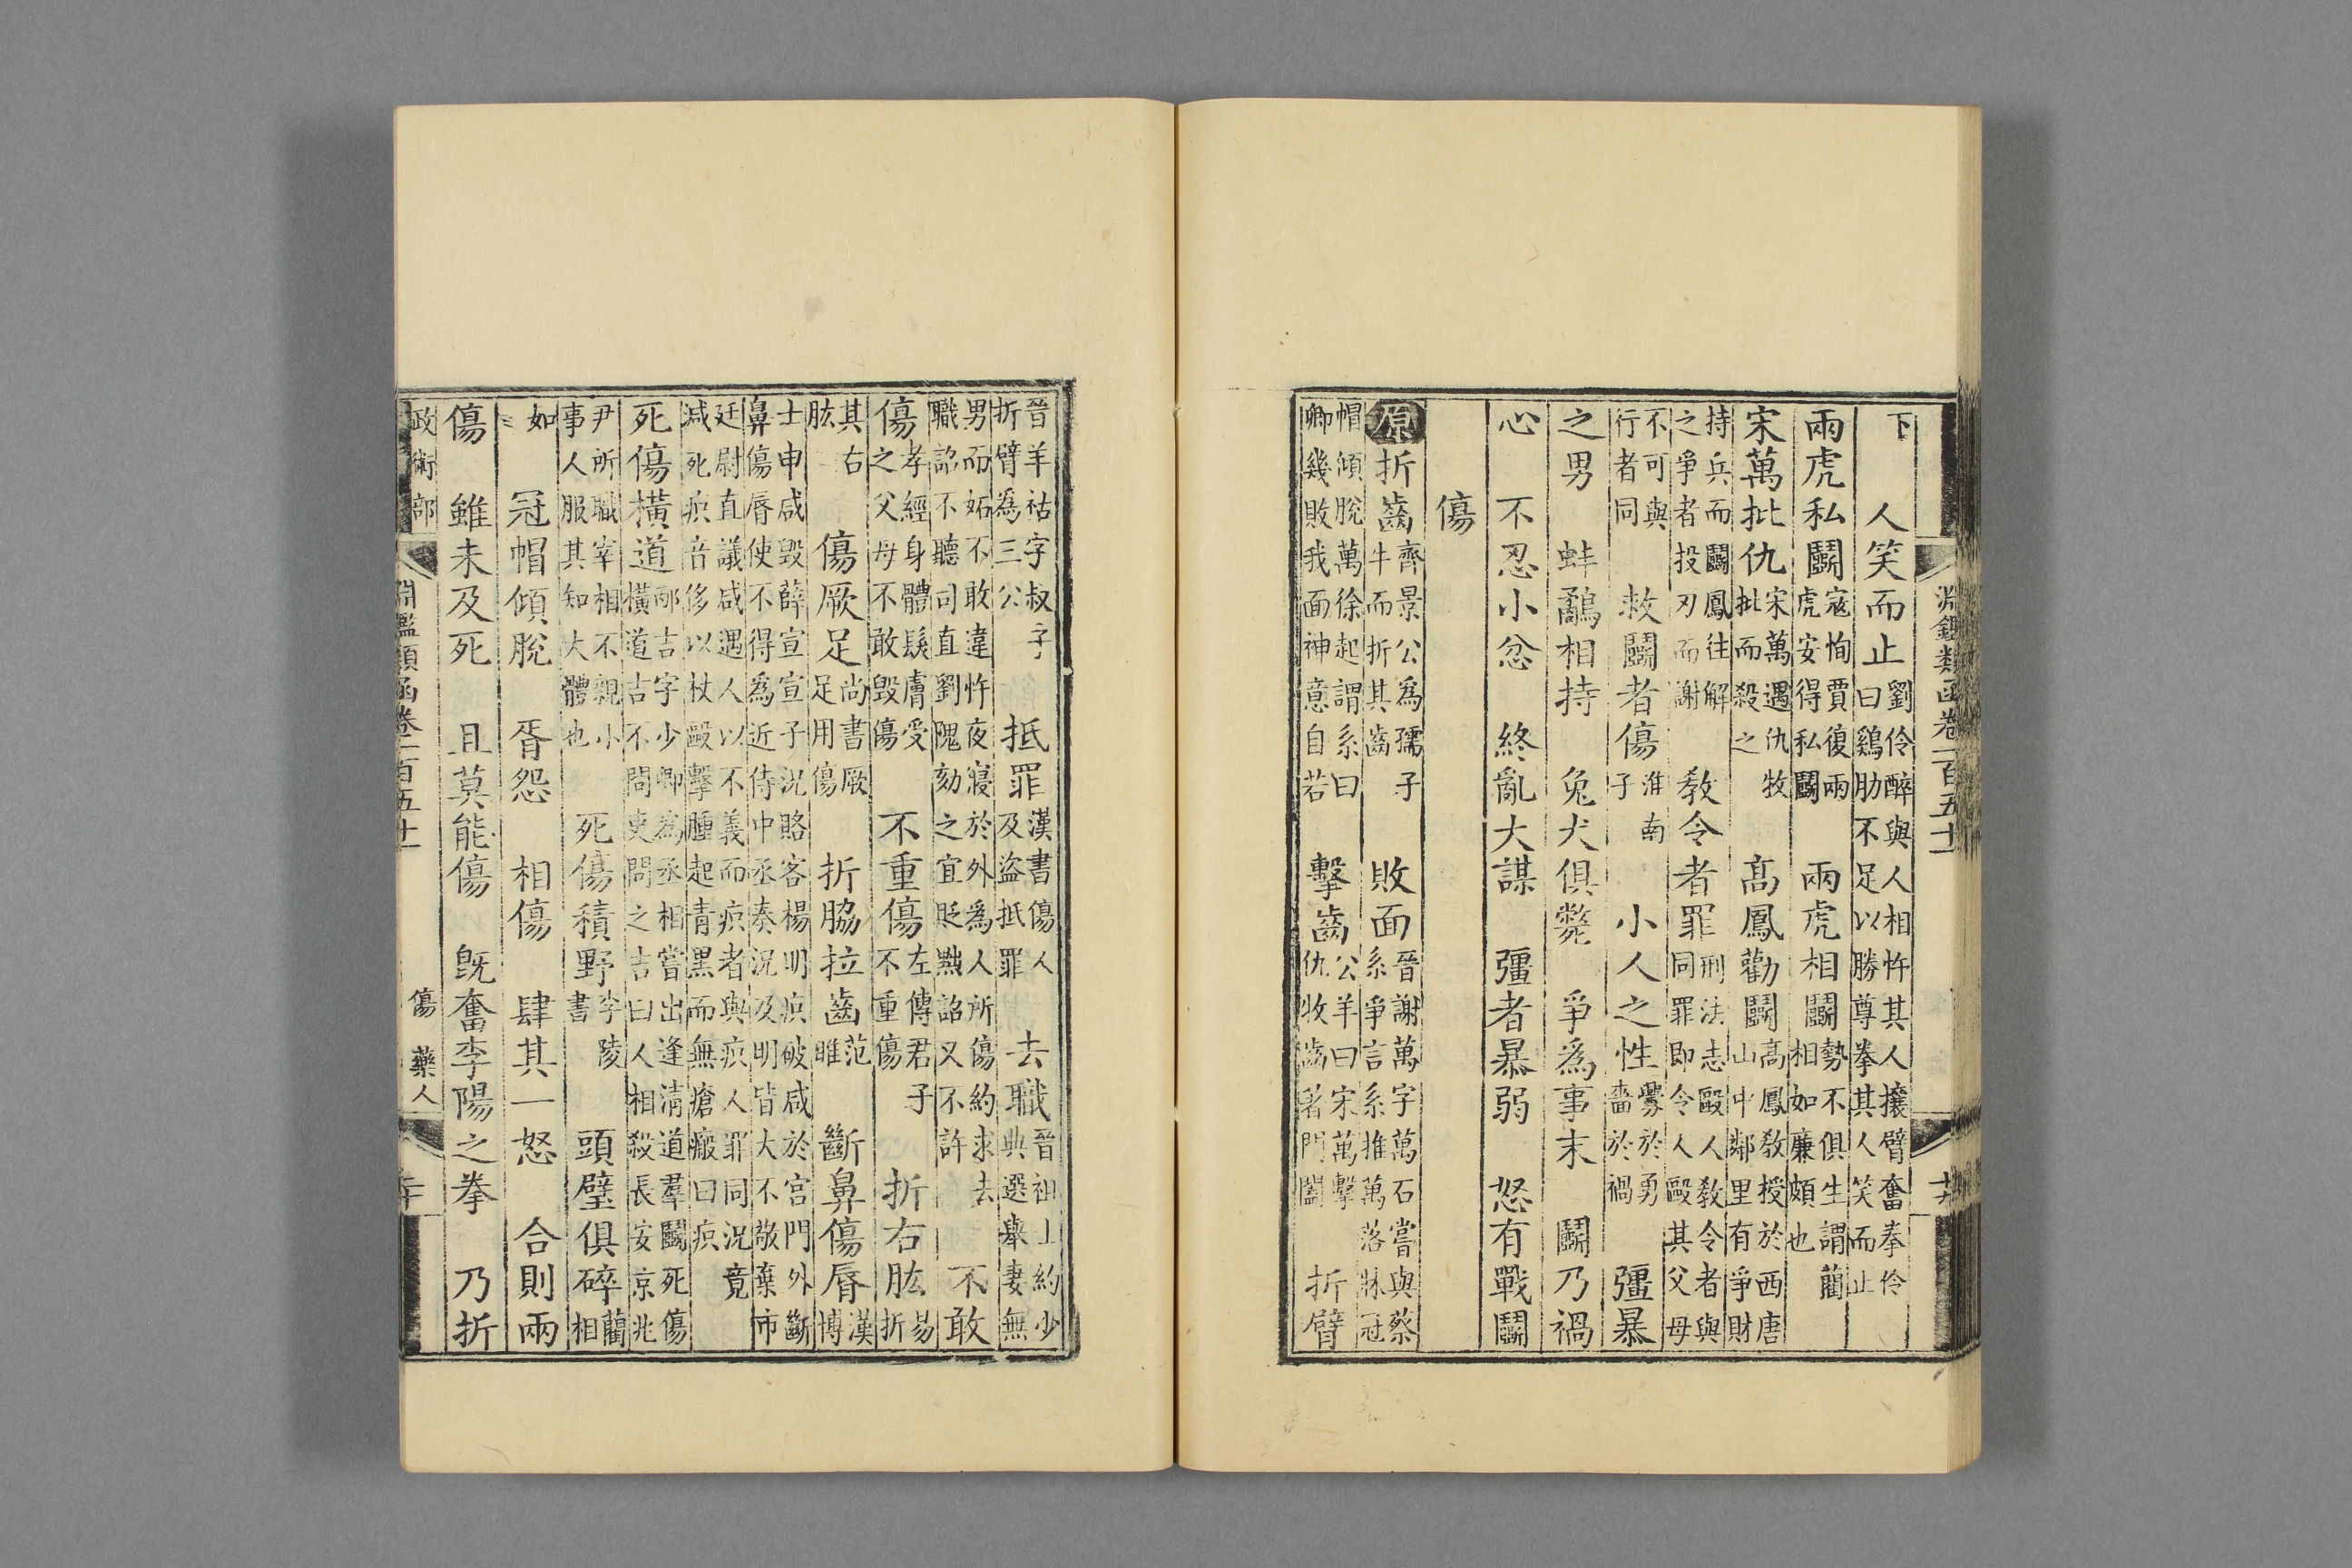 淵鑑類函卷一百五十
下　人笑而止劉伶醉與人相忤其人攘臂奮拳伶曰鷄肋不足以勝尊拳其人笑而止
兩虎私鬭寇恂賈復兩虎安得私鬭　兩虎相鬭勢不俱生謂藺相如廉頗也
宋萬批仇宋萬遇仇牧批而殺之　高鳳勸鬭高鳳教授於西唐山中鄰里有爭財
持兵而鬭鳳往解之爭者投刃而謝　教令者罪刑法志毆人教令者與同罪即令人毆其父母
不可與行者同　救鬭者傷淮南子　小人之性釁於勇嗇於禍　彊暴
之男　蚌鷸相持　兔犬俱斃　爭為事末　鬭乃禍
心　不忍小忿　終亂大謀　彊者暴弱　怒有戰鬭
傷
原折齒齊景公為孺子牛而折其齒　敗面晉謝萬字萬石嘗與蔡系爭言系推萬落牀冠
帽傾脫萬徐起謂系曰卿幾敗我面神意自若　擊齒公羊曰宋萬擊仇牧齒著門闔　折臂
晉羊祜字叔子折臂為三公　抵罪漢書傷人及盜抵罪　去職晉祖約少典選舉妻無
男而妬不敢違忤夜寢於外為人所傷約求去職詔不聽司直劉隗劾之宜貶黜詔又不許　不敢
傷孝經身體髮膚受之父母不敢毀傷　不重傷左傳君子不重傷　折右肱易折
其右肱　傷厥足尚書厥足用傷　折脇拉齒范睢　斷鼻傷脣漢博
士申咸毀薛宣宣子況賂客楊明㾗破咸於宮門外斷鼻傷脣使不得為近侍中丞奏況及明皆大不敬棄市
廷尉直議咸遇人以不義而㾗者與㾗人罪同況竟減死㾗音侈以杖毆擊腫起青黑而無瘡瘢曰㾗
死傷橫道邴吉字少卿為丞相嘗出逢淸道羣鬭死傷橫道吉不問吏問之吉曰人相殺長安京兆
尹所職宰相不親小事人服其知大體也　死傷積野李陵書　頭璧俱碎藺相
如　冠帽傾脫　胥怨　相傷　肆其一怒　合則兩
傷　雖未及死　且莫能傷　旣奮李陽之拳　乃折
政術部　淵鑑類函卷一百五十　傷　藥人